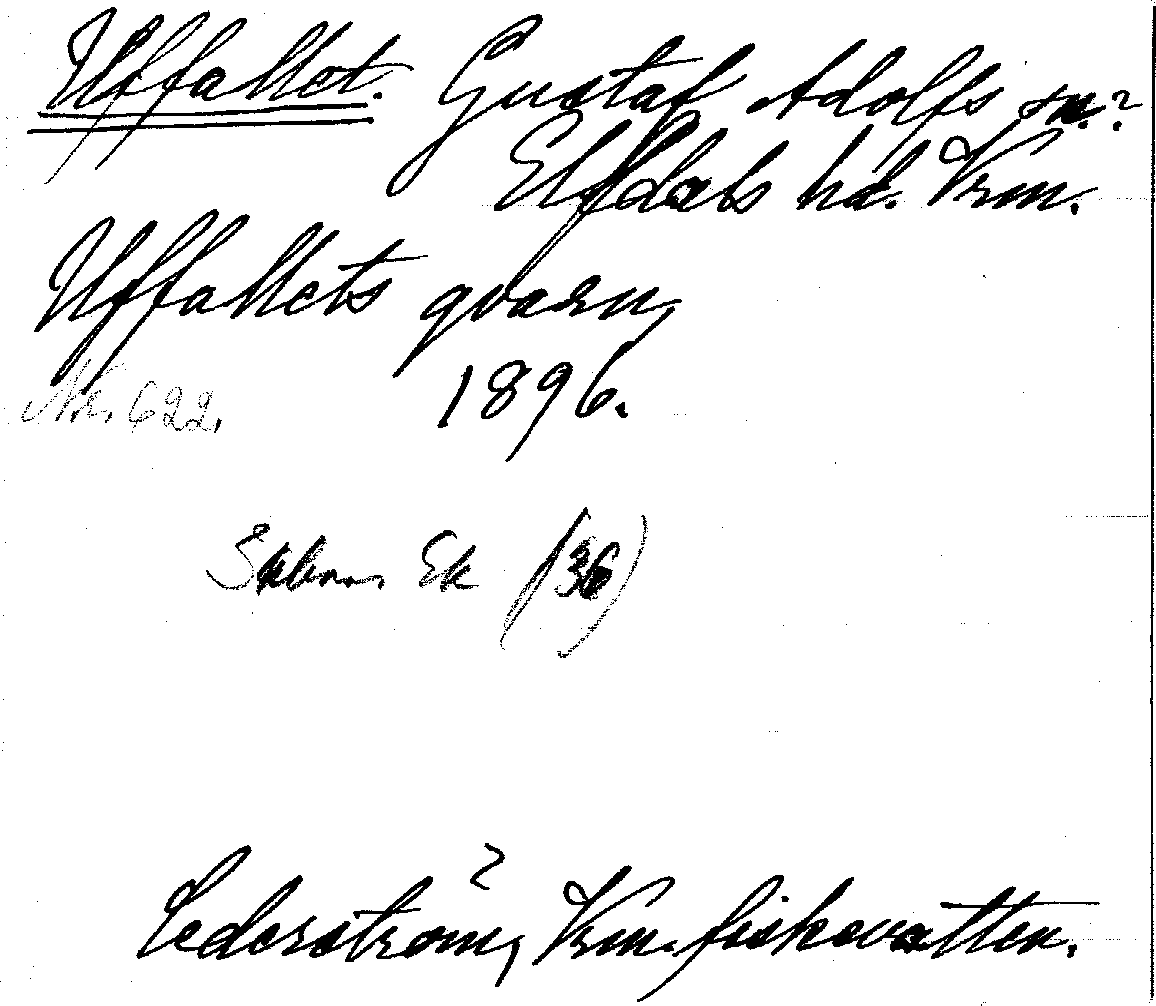 Uffallet. Gustaf Adolfs sn.?
Elfdals hd. Vrm.
Uffallets qvarn,
1896.
Nr. 622.
Ek (36)
Cederström, Vrm. fiskevatten.